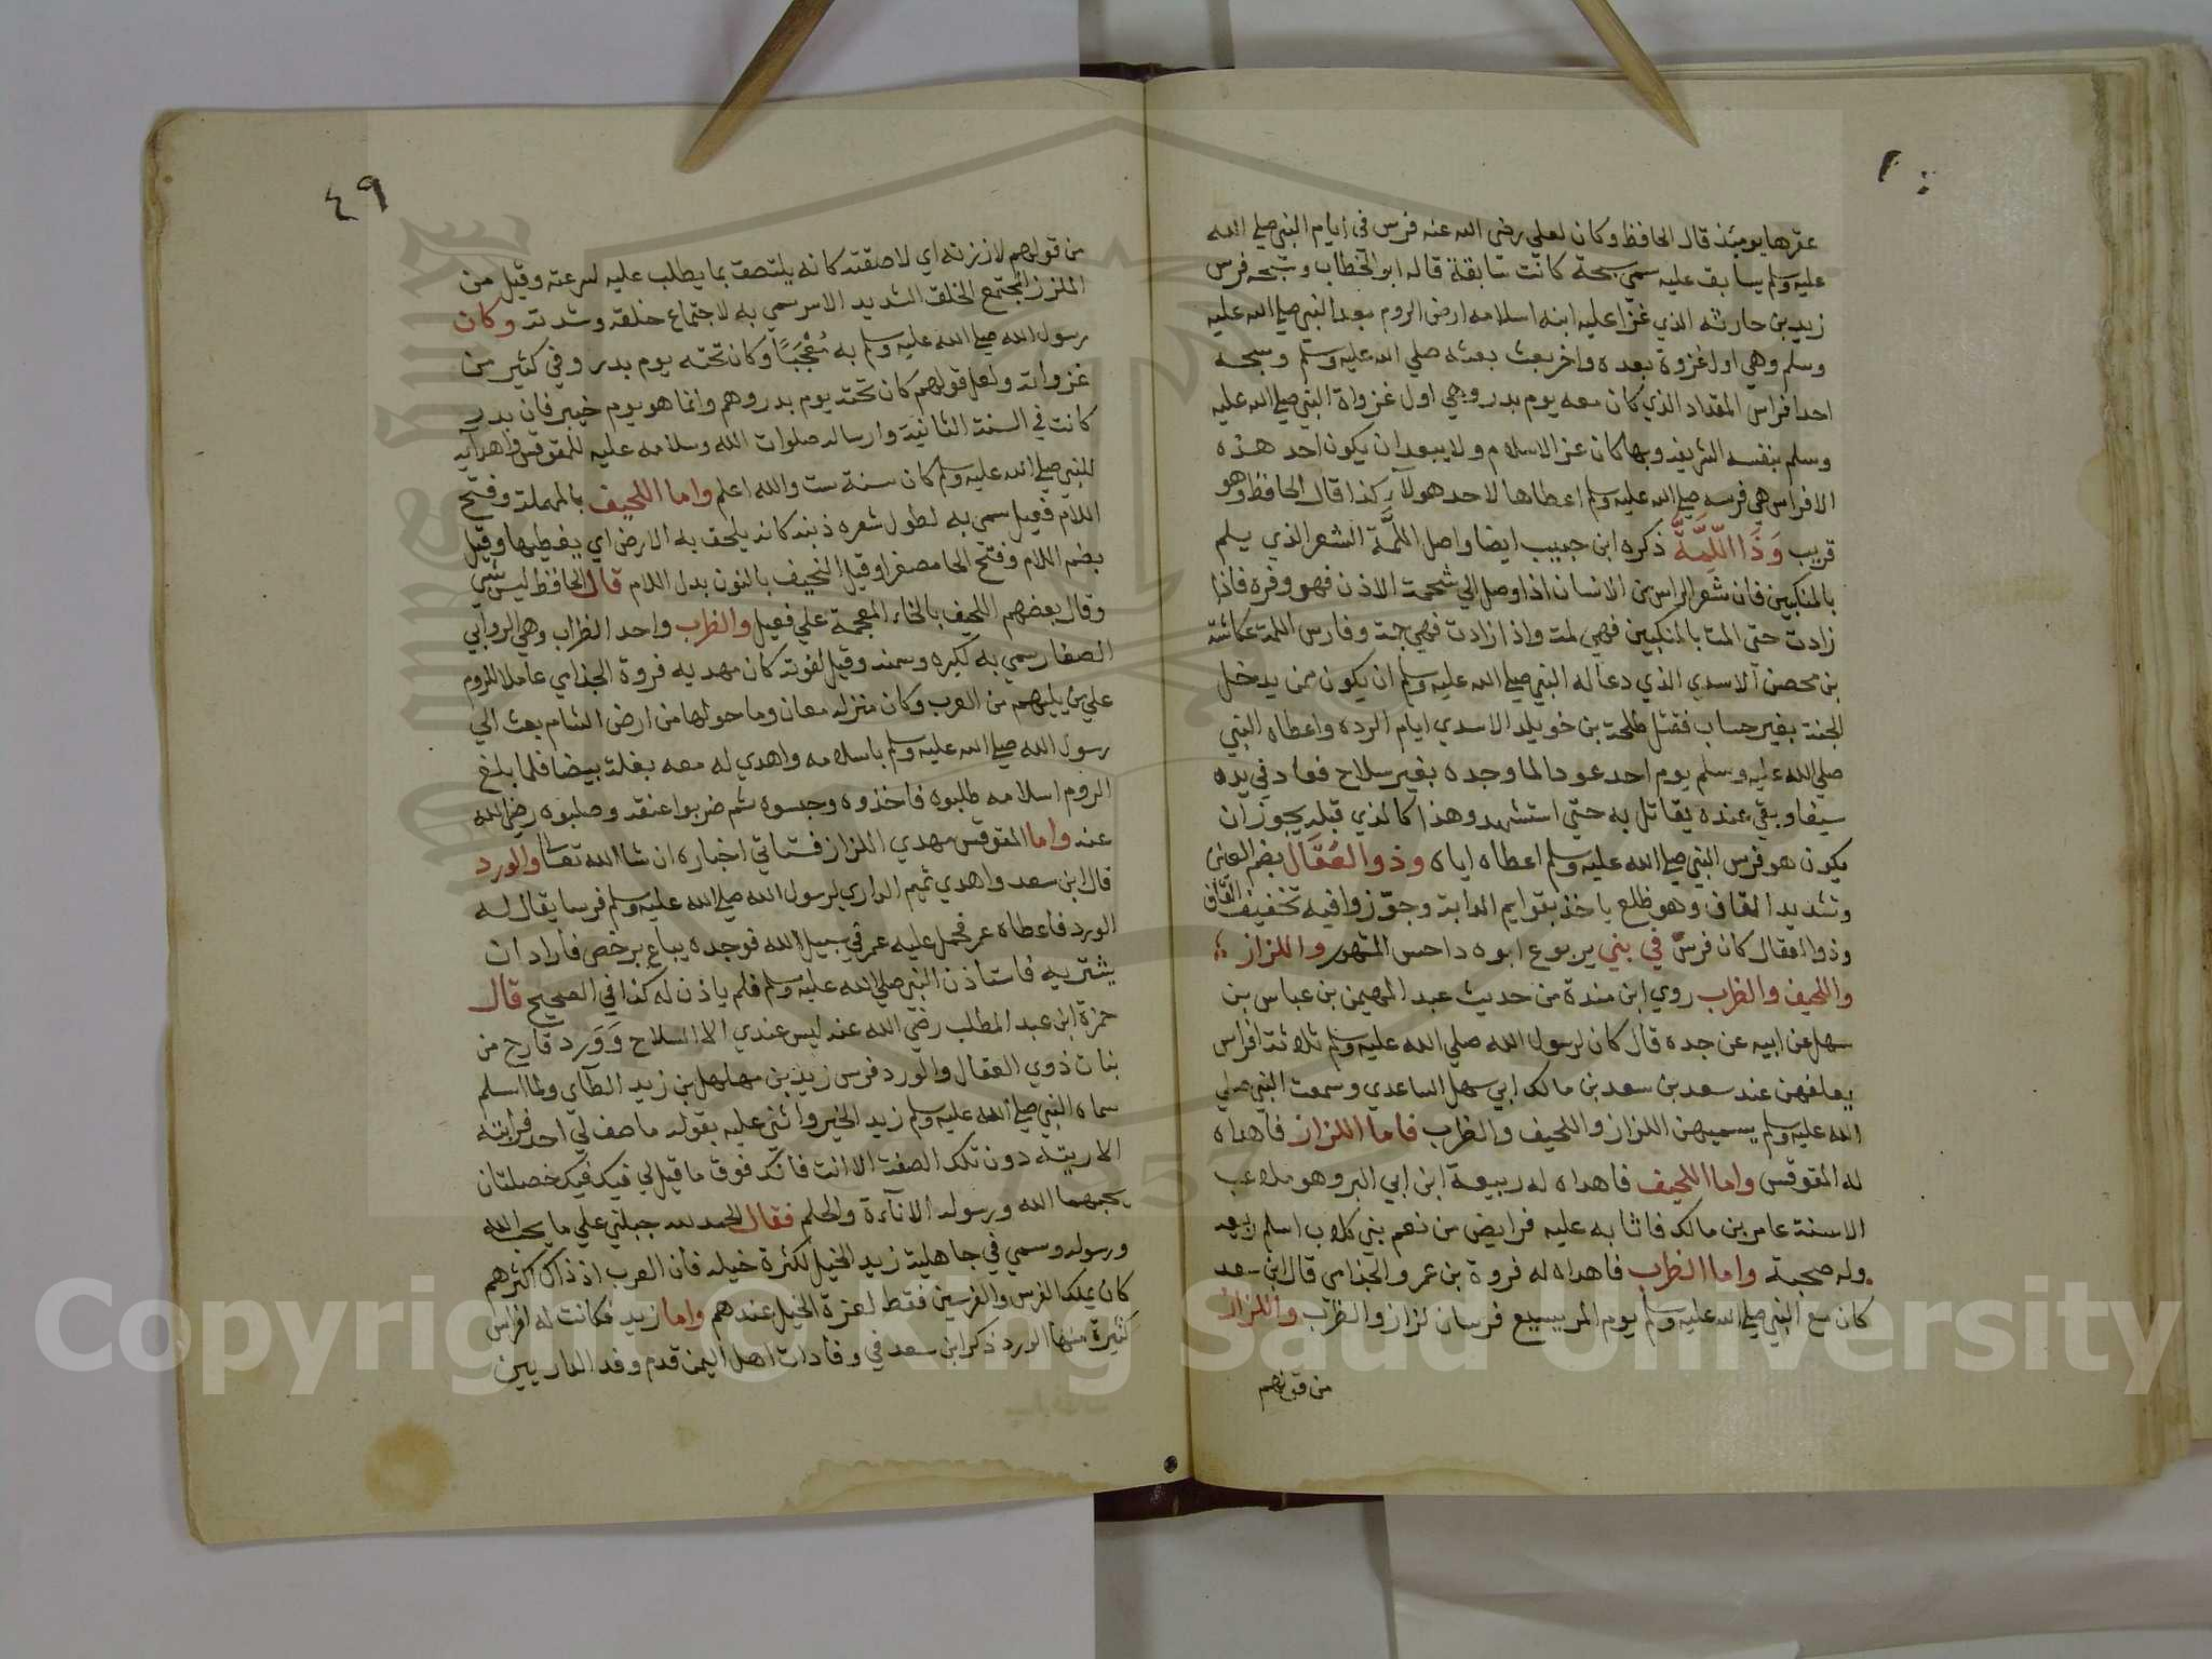 عقرها يومئذ قال الحافظ وكان لعلي رضي الله عنه فرس في ايام النبي صلي الله
عليه وسلم يسابق عليه سمي سبحة كانت سابقة قاله ابو الخطاب وسبحه فرس
زيد بن حارثه الذي غزا عليه ابنه اسلامه ارض الروم بعد النبي صلي الله عليه
وسلم وهي اول غزوة بعده واخر بعث بعثه صلي الله عليه وسلم وسبحه
احد افراس المقداد الذي كان معه يوم بدر وهي اول غزواة النبي صلي الله عليه
وسلم بنفسه الشريفه وبها كان عز الاسلام ولا يبعد ان يكون احد هذه
الافراس هي فرسه صلي الله عليه وسلم اعطاها لاحد هولآء كذا قال الحافظ وهو
قريب وَذَا اللِّمَّةُ ذكره ابن حبيب ايضا واصل اللمَّة الشعر الذي يلم
بالمنكبين فان شعر الراس من الانسان اذا وصل الي شحمة الاذن فهو وفره فاذا
زادت حتي المت بالمنكبين فهي لمة واذا زادت فهي جمة وفارس اللمة عكاشه
بن محصن الاسدي الذي دعا له النبي صلي الله عليه وسلم ان يكون ممن يدخل
الجنة بغير حساب فقتل طلحة بن خويلد الاسدي ايام الرده واعطاه النبي
صلي الله عليه وسلم يوم احد عودا لما وجده بغير سلاح فعاد في يده
سيفا وبقي عنده يقاتل به حتي استشهد وهذا كالذي قبله يجوز ان
يكون هو فرس النبي صلي الله عليه وسلم اعطاه اياه وذو العُقَّال بضم العين
وتشديد القاف وهو ظلع ياخذ بقوايم الدابة وجوّزوا فيه تخفيف القاف
وذو العقال كان فرسٌ في بني يربوع ابوه داحس المشهور واللزاز
واللحيف والظرب روي ابن مندة من حديث عبد المهيمن بن عباس بن
سهل عن ابيه عن جده قال كان لرسول الله صلي الله عليه وسلم ثلاثة افراس
يعلفهن عند سعد بن سعد بن مالك ابي سهل الساعدي وسمعت النبي صلي
الله عليه وسلم يسميهن اللزاز واللحيف والظرب فاما اللزاز فاهداه
له المقوقس واما اللحيف فاهداه له ربيعة ابن ابي البر وهو ملاعب
الاسنة عامر بن مالك فاثابه عليه فرايض من نعم بني كلاب اسلم ربيعه
وله صحبة واما الظرب فاهداه له فروة بن عمرو الجذامي قال ابن سعد
كان مع النبي صلي الله عليه وسلم يوم المريسيع فرسان لزاز والظرب واللزاز
من قولهم
٤٩
من قولهم لاززته اي لاصقته كانه يلتصق بما يطلب عليه لسرعته وقيل من
الملزز المجتمع الخلق الشديد الاسر سمي به لاجتماع خلقه وشدته وكان
رسول الله صلي الله عليه وسلم به مُعْجَبًا وكان تحته يوم بدر وفي كثير من
غزواته ولعل قولهم كان تحته يوم بدر وهم وانما هو يوم خيبر فان بدر
كانت في السنة الثانية وارساله صلوات الله وسلامه عليه للمقوقس واهدآيه
للنبي صلي الله عليه وسلم كان سنة ست والله اعلم واما اللحيف بالمهملة وفتح
اللام فعيل سمي به لطول شعره ذنبه كانه يلحف به الارض اي يغطيها وقيل
بضم اللام وفتح الحا مصغرا وقيل النحيف بالنون بدل اللام قال الحافظ ليس شي
وقال بعضهم اللخيف بالخاء المعجمة علي فعيل والظرب واحد الظراب وهي الروابي
الصغار سمي به لكبره وسمنه وقيل لقوته كان مهديه فروة الجذامي عاملا للروم
علي من يليهم من العرب وكان منزله معان وما حولها من ارض الشام بعث الي
رسول الله صلي الله عليه وسلم باسلامه واهدي له معه بغلة بيضا فلما بلغ
الروم اسلامه طلبوه فاخذوه وحبسوه ثم ضربوا عنقه وصلبوه رضي الله
عنه واما المقوقس مهدي اللزاز فستاتي اخباره ان شا الله تعالى والورد
قال ابن سعد واهدي تميم الداري لرسول الله صلي الله عليه وسلم فرسا يقال له
الورد فاعطاه عمر فحمل عليه عمر في سبيل الله فوجده يباع برخص فاراد ان
يشتريه فاستاذن النبي صلي الله عليه وسلم فلم ياذن له كذا في الصحيح قال
حمزة ابن عبد المطلب رضي الله عنه ليس عندي الا السلاح وَوَرد قارح من
بنات ذوي العقال والورد فرس زيد بن مهلهل بن زيد الطآي ولما اسلم
سماه النبي صلي الله عليه وسلم زيد الخير واثني عليه بقوله ما صف لي احد فرايته
الا ريته دون تلك الصفة الا انت فانك فوق ما قيل لي فيك فيك خصلتان
يحبهما الله ورسوله الانآءة والحلم فقال الحمد لله جبلني علي ما يحب الله
ورسوله وسمي في جاهلية زيد الخيل لكثرة خيله فان العرب اذ ذاك اكثرهم
كان يملك الفرس والفرسين فقط لعزة الخيل عندهم واما زيد فكانت له افراس
كثيرة منها الورد ذكر ابن سعد في وفادات اهل اليمن قدم وفد الداريين
Copyright © King Saud University